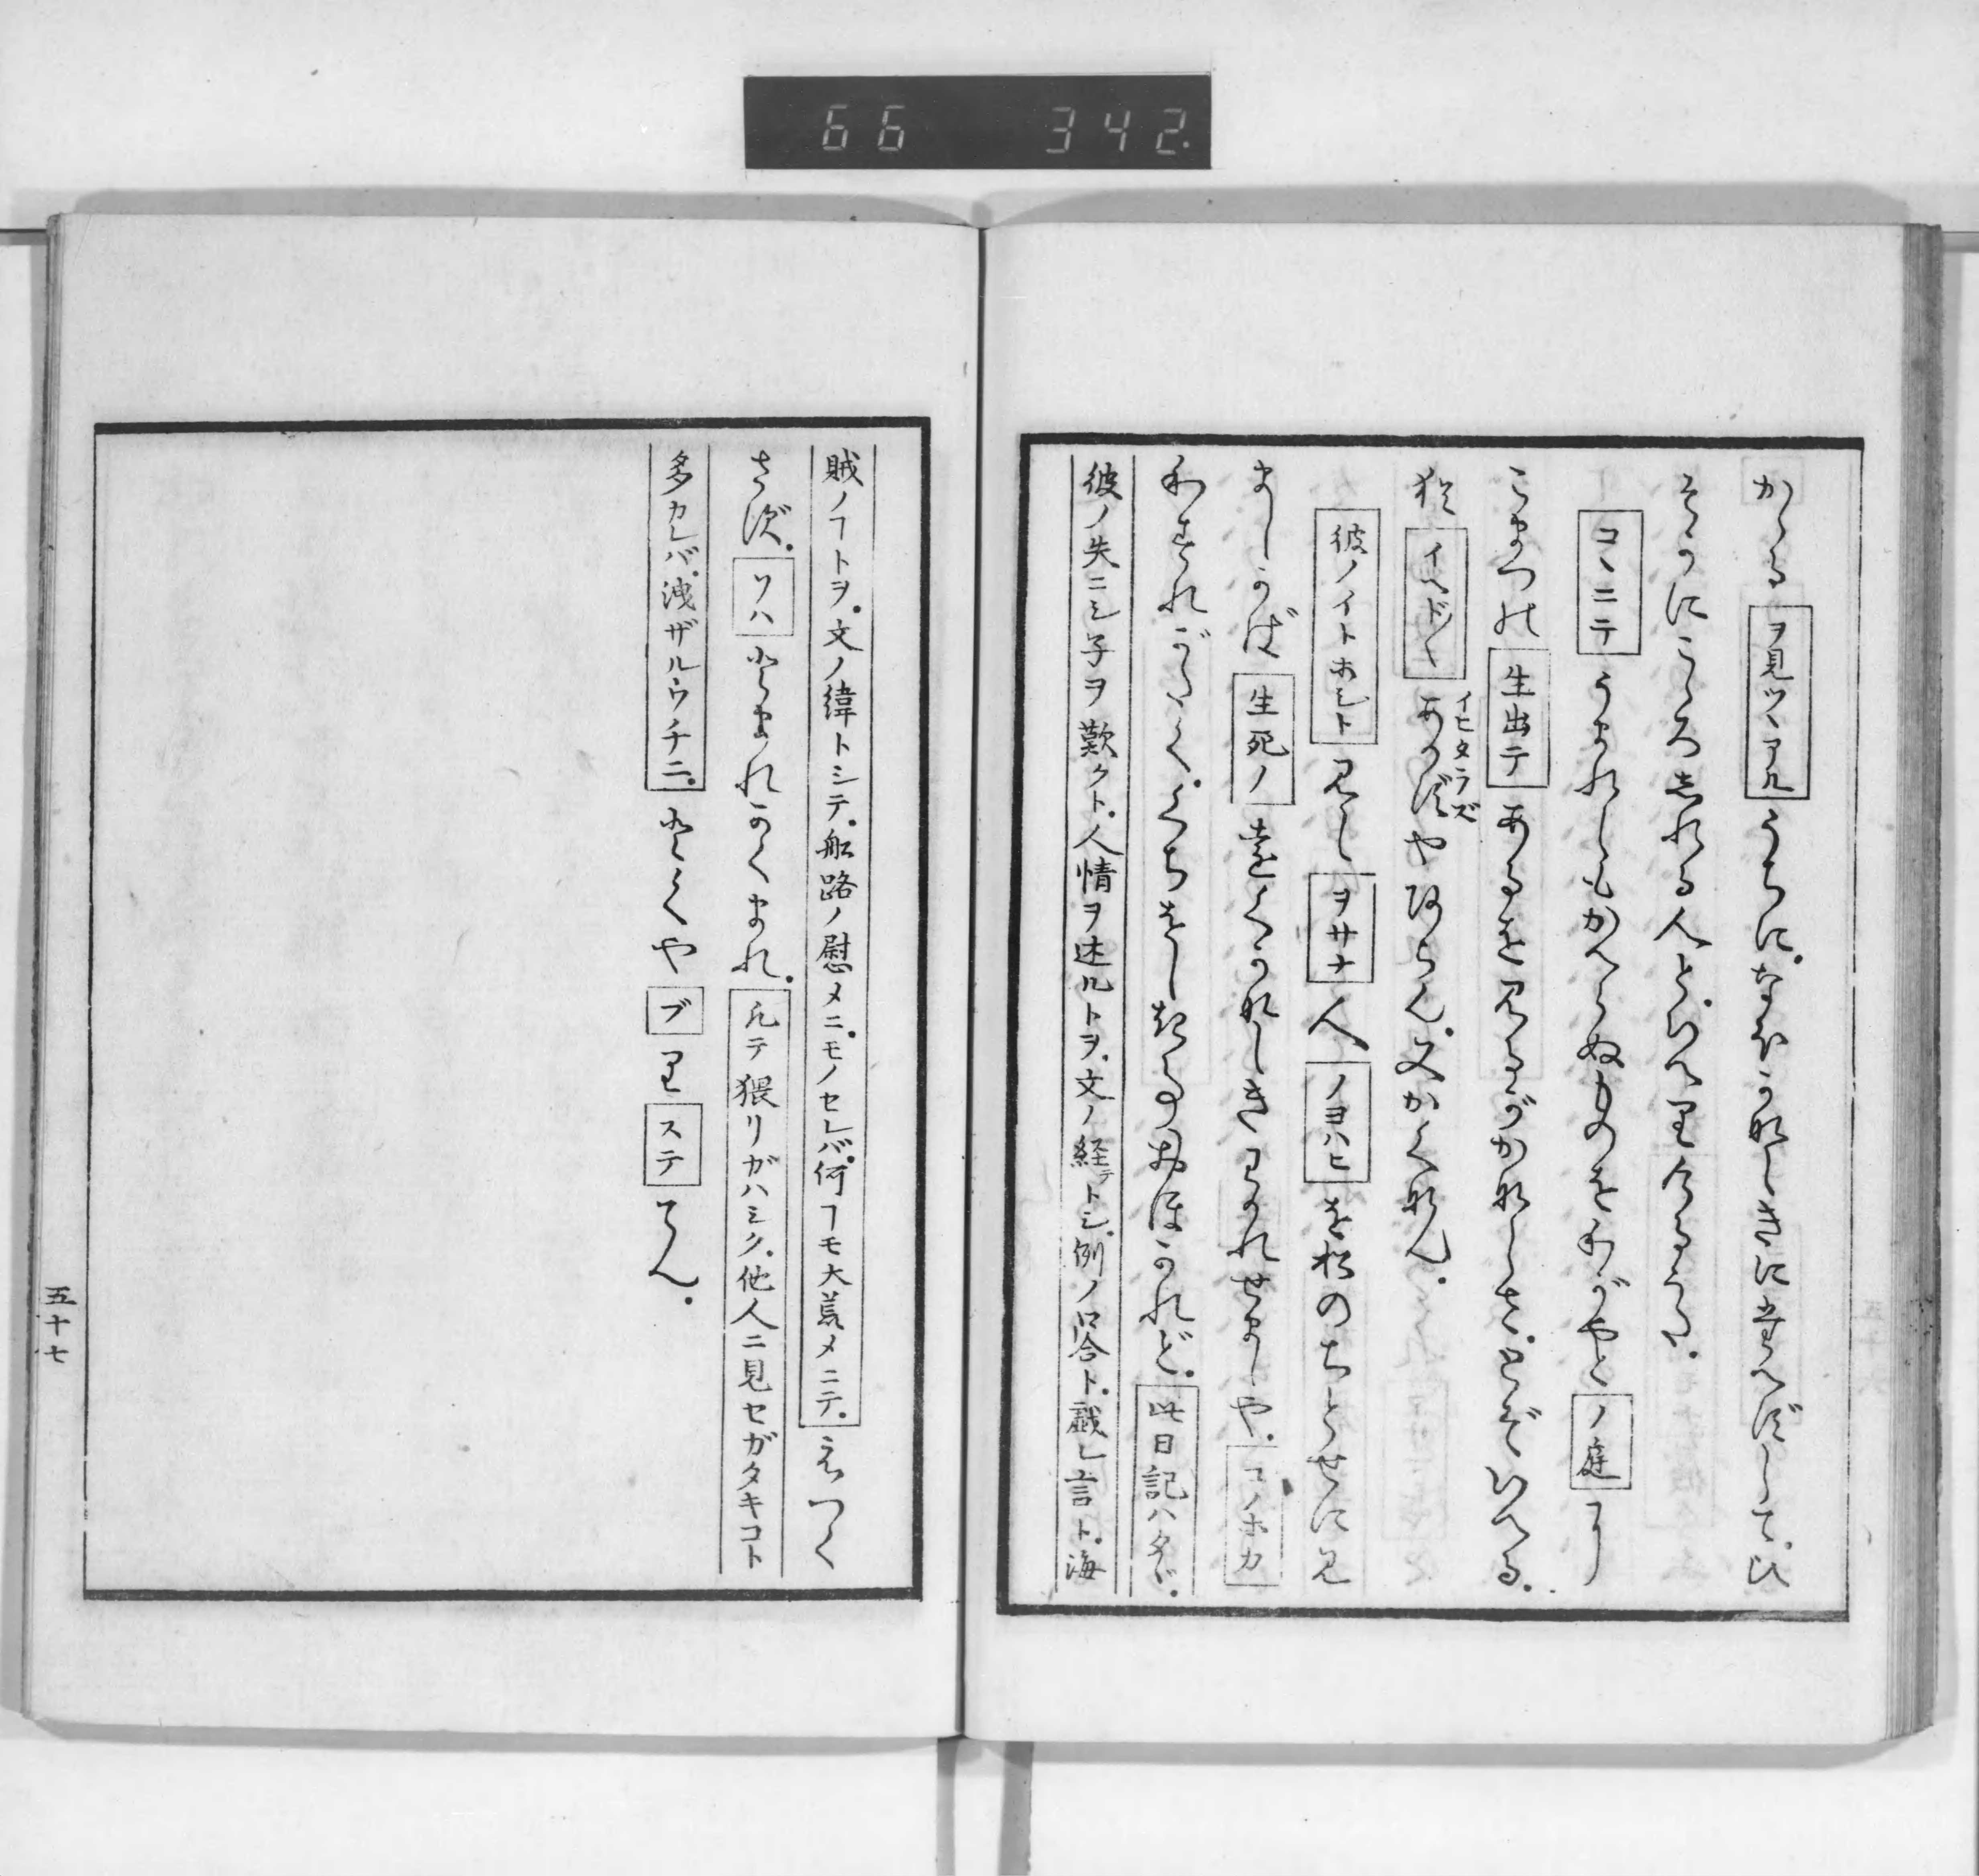 66 342.
かゝる ヲ見ツヽアル うちに。なほかなしきにたへずして。ひ
そかにこゝろしれる人と。いへりけるうた。
コヽニテ うまれしもかへらぬものをわがやと ノ庭 に
こまつの 生出テ あるを見るがかなしさ。とぞいへる。
猶 イヘド〳〵 あかずやあらん。又かくなん。
イヒタラズ
彼ノイトホシト 見し ヲサナ 人 ノヨハヒ を松のちとせに見
ましかば 生死ノ とほくかなしきわかれせましや。 コノホカ
わすれがたく。くちをしきことおほかれど。 此日記ハタヾ。
彼ノ失ニシ子ヲ歎クト。人情ヲ述ルトヲ。文ノ経テトシ。例ノ口合ト。戯レ言ト。海
賊ノヿトヲ。文ノ緯トシテ。船路ノ慰メニ。モノセレバ。何ヿモ大荒メニテ。 えつく
さず。 ソハ とまれかくまれ。 凡テ猥リガハシク。他人ニ見セガタキコト
多カレバ。洩ザルウチニ。 とくや ブ り ステ てん。
五十七